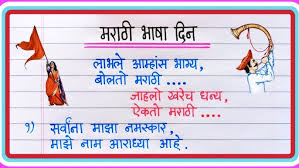 मराठी भाषा दिन
लाभले आम्हांस भाग्य,
बोलतो मराठी ....
जाहलो खरेच धन्य,
ऐकतो मराठी ....
१) सर्वांना माझा नमस्कार,
माझे नाव आराध्या आहे.